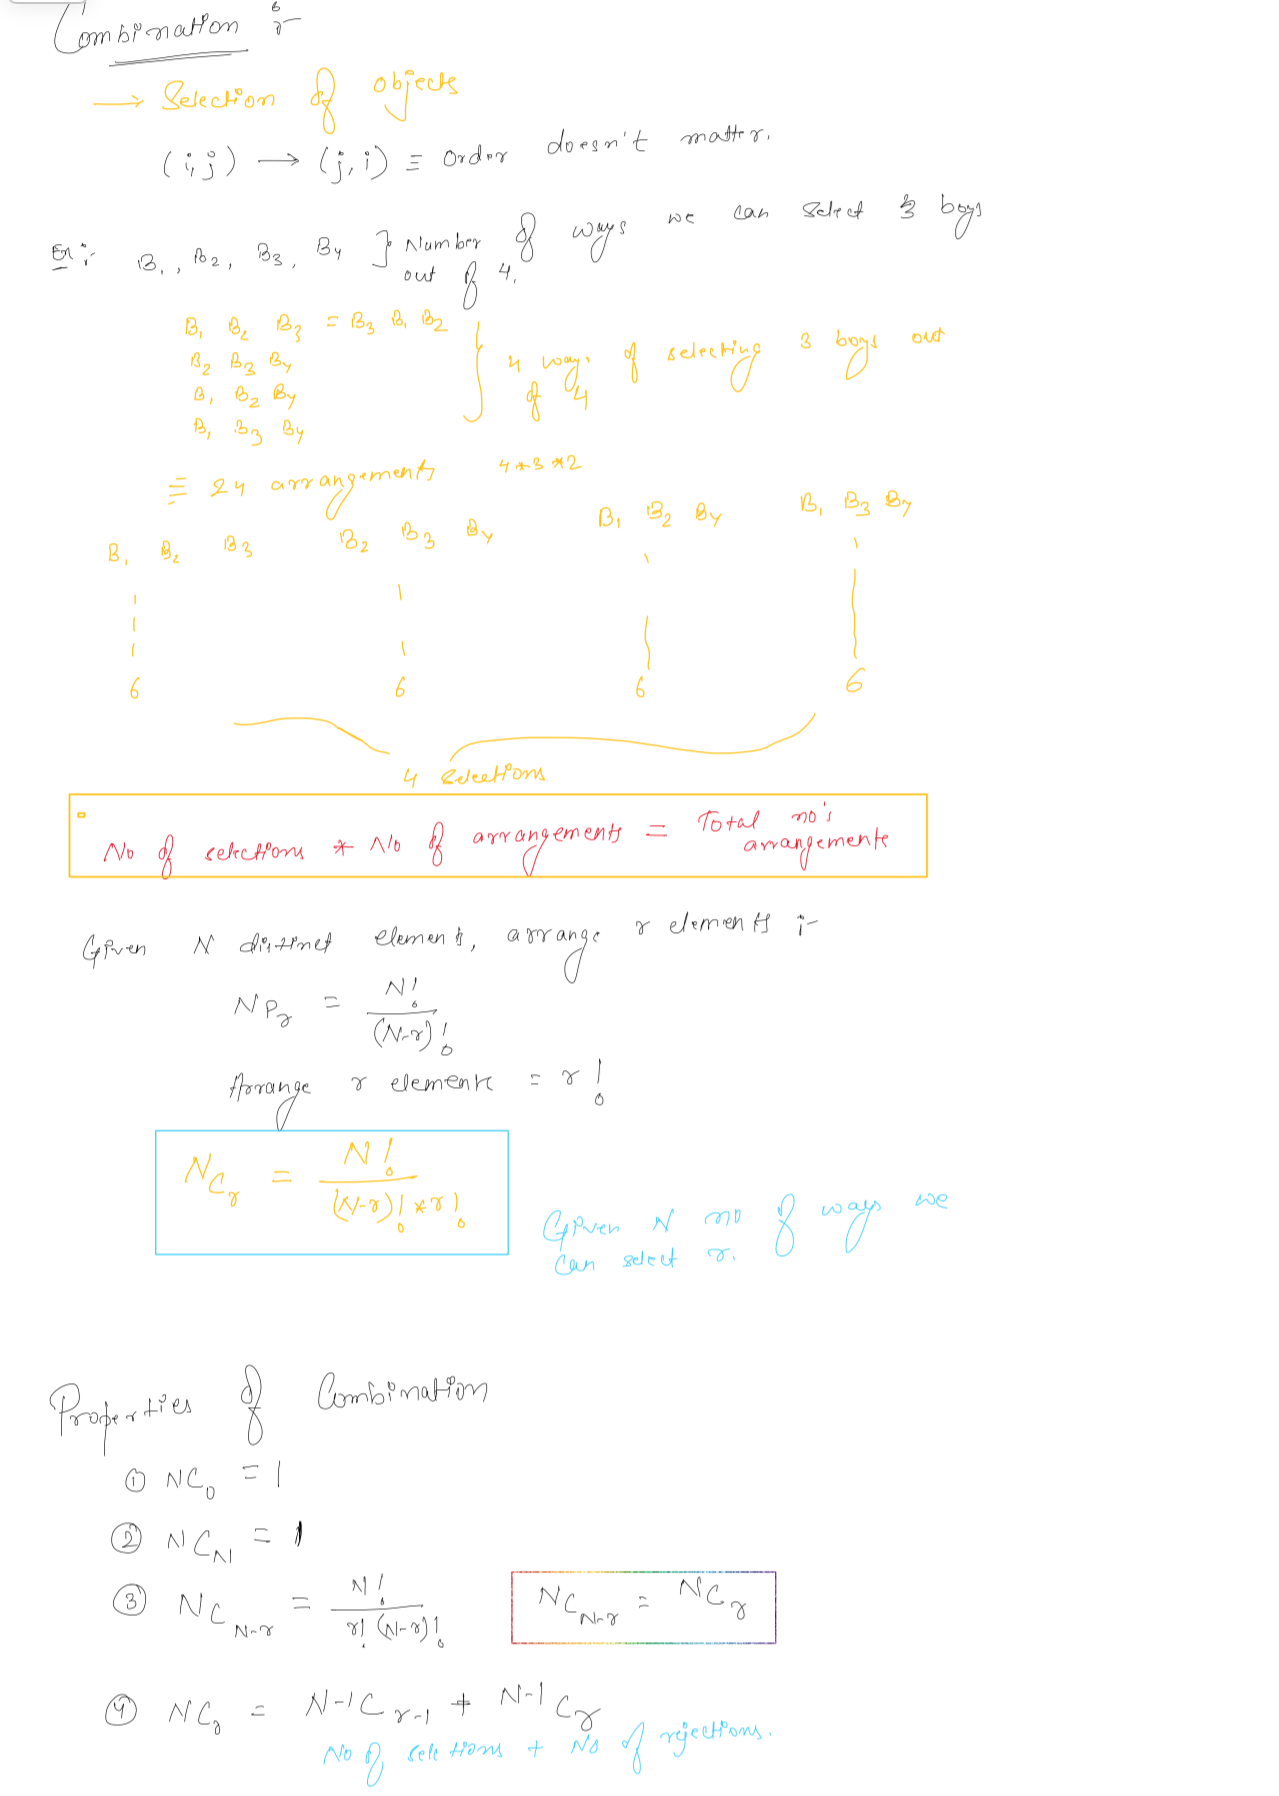 Combination :-
→ Selection of objects
(i,j) → (j,i) ≡ Order doesn't matter.
Ex:- B1, B2, B3, B4 } Number of ways we can select 3 boys
out of 4.
B1 B2 B3 = B3 B1 B2
B2 B3 B4
B1 B2 B4
B1 B3 B4
4 ways of selecting 3 boys out
of 4
≡ 24 arrangements 4*3*2
B1 B2 B3 B2 B3 B4 B1 B2 B4 B1 B3 B4
6 6 6 6
4 selections
No of selections * No of arrangements = Total no's
arrangements
Given N distinct elements, arrange r elements :-
NPr = N! / (N-r)!
Arrange r elements = r!
NCr = N! / (N-r)! * r!
Given N no of ways we
can select r.
Properties of Combination
① NC0 = 1
② NCN = 1
③ NCN-r = N! / r! (N-r)!
NCN-r = NCr
④ NCr = N-1Cr-1 + N-1Cr
No of selections + No of rejections.